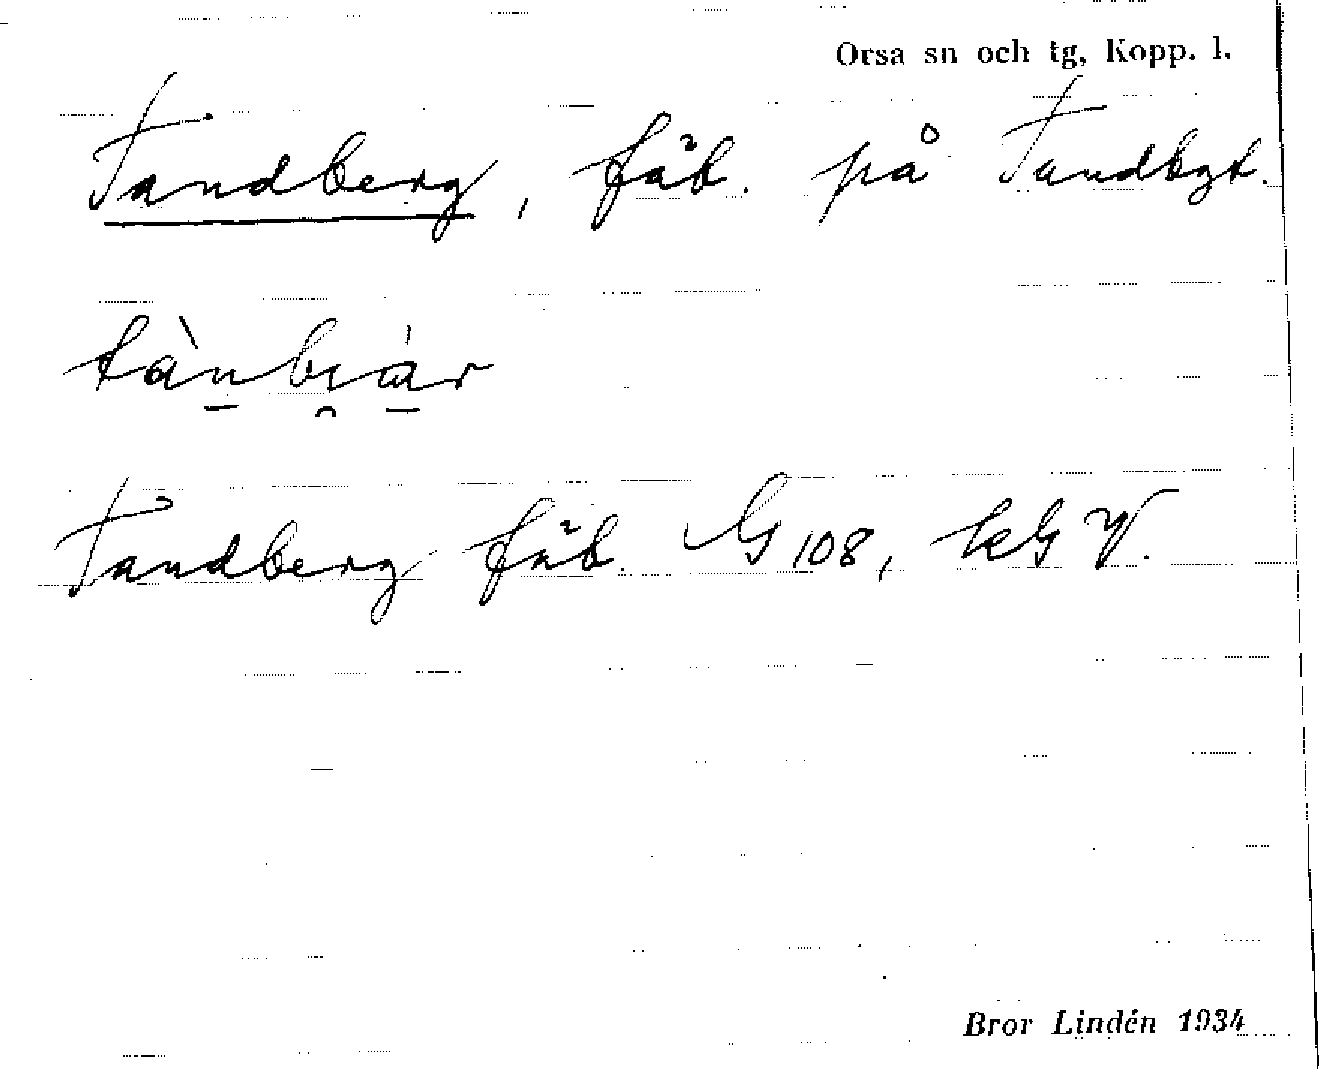 Orsa sn och tg, Kopp. l.
Tandberg, fäb. på Tandbgt.
tànbi̯ár
Tandberg fäb. G 108, kG V.
Bror Lindén 1934